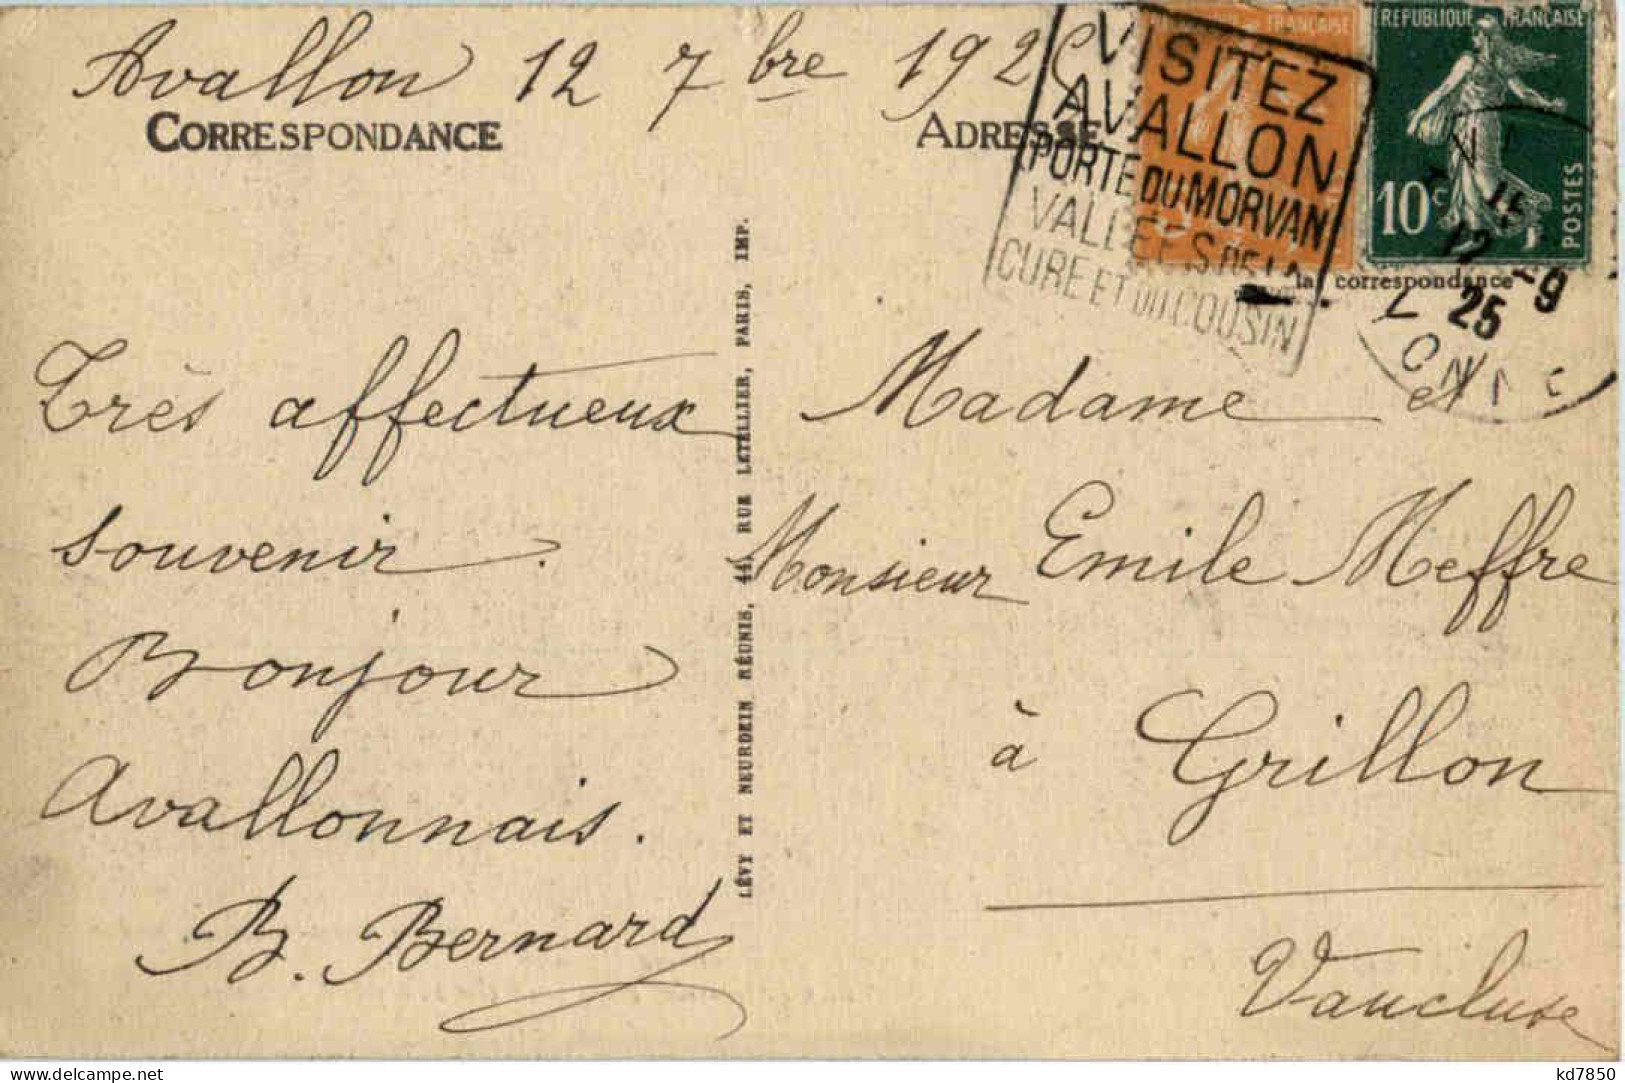 Avallon 12 7bre 192
CORRESPONDANCE
ADRESSE
VISITEZ
AVALLON
PORTE DU MORVAN
VALLEES DE LA
CURE ET DU COUSIN
FRANÇAISE
REPUBLIQUE FRANÇAISE
10c
POSTES
la correspondance
15
12 -9
25
Très affectueux
souvenir.
Bonjour
Avallonnais.
B. Bernard
LÉVY ET NEURDEIN RÉUNIS, 44, RUE LETELLIER, PARIS, IMP.
Madame et
Monsieur Emile Meffre
à Grillon
Vaucluse
kd7850